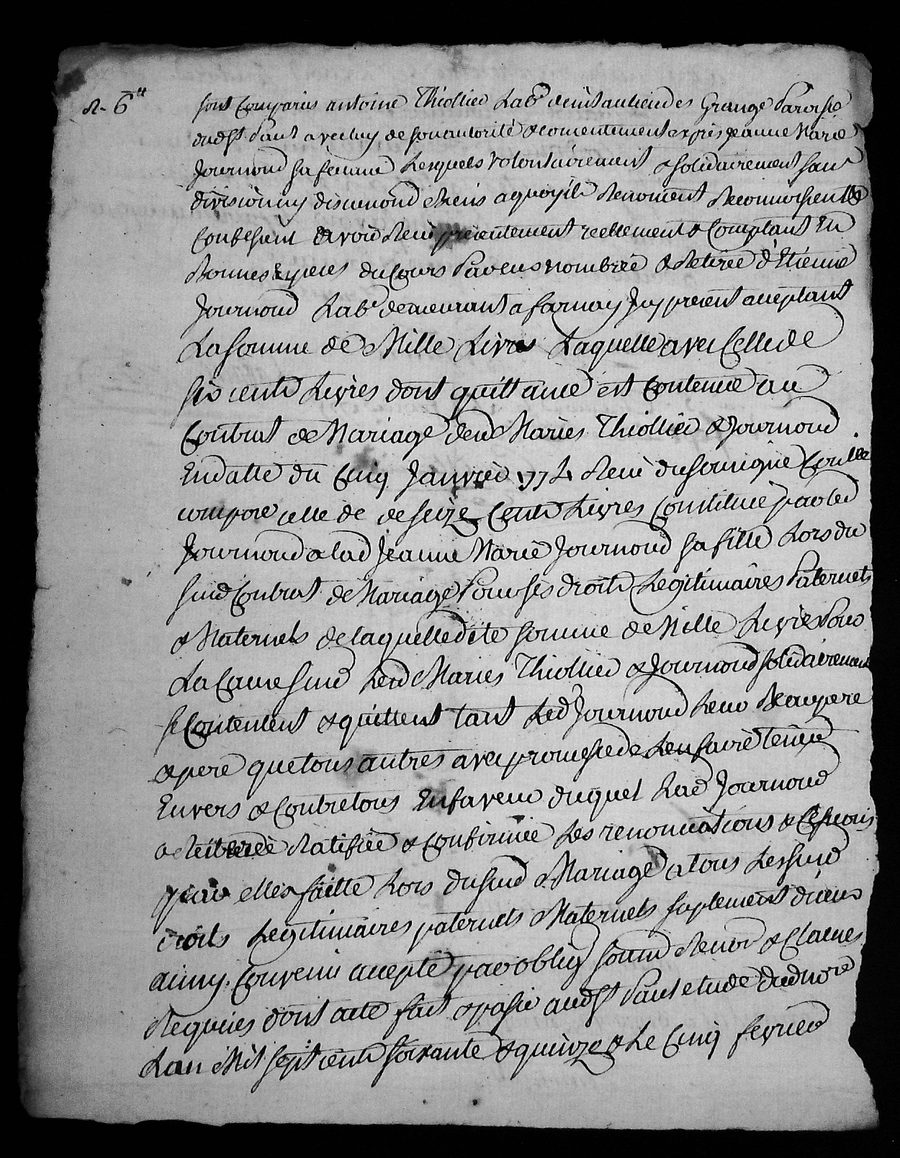 R. 6ᵗᵗ
sont Comparus antoine Thiollier Lab.r demeurant au lieu des Grange Paroisse
dud St Paul avec luy de son autorité & consentement exprès jeanne Marie
Journoud sa femme Lesquels volontairement & solidairement sans
division ny discution
Confessent avoir Reçu présentement reellement & Comptant En
Bonnes Especes du Cours Par eux nombrée & Retirée d'Etienne
Journoud Lab.r demeurant a farnay Icy present acceptant
La somme de Mille Livres Laquelle avec Celle de
six cents Livres dont quittance est Contenue au
Contrat de Mariage desd Mariés Thiollier & Journoud
En datte du Cinq Janvier 1774 Reçu du soussigné Con.ller
compose celle de de seize Cents Livres Constitué par led
Journoud a lad Jeanne Marie Journoud sa fille Lors du
susd Contrat de Mariage Pour ses droits Legitimaires Paternels
& Maternels de laquelle dite somme de Mille Livres Pour
La Cause susd Lesd Mariés Thiollier & Journoud solidairement
se Contentent & quittent tant Led Journoud Leur Beaupere
& pere que tous autres avec promesse de Len faire tenir
Envers & Contre tous En faveur duquel Lad Journoud
a Reiterée Ratifiée & Confirmée Les renonciations & Cessions
quelle a faitte Lors dusud Mariage a tous Lessusd
droits Legitimaires paternels Maternels suplement d'iceux
ainsy Convenu accepté par oblig soumd Renon & Clauses
Requises dont acte fait & passé aud St Paul etude dud nore
Lan Mil sept cents soixante & quinze & Le Cinq fevrier